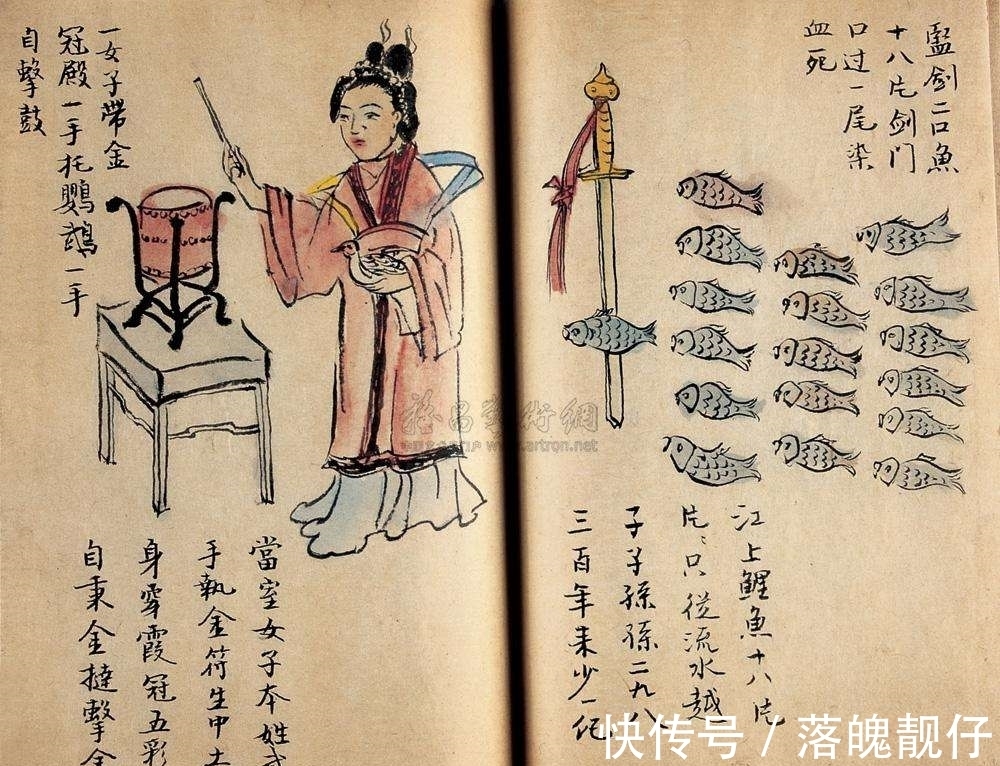 剑二口魚
十八片剑门
口过一尾染
血死
江上鯉魚十八片
片〻只從流水越
子子孫孫二九八
三百年来少一
一女子帶金
冠殿一手托鸚鵡一手
自擊鼓
當室女子本姓
手執金符生中土
身穿霞冠五彩
自秉金撻擊金
雅昌藝術網
www.artron.net
快传号 / 落魄靓仔